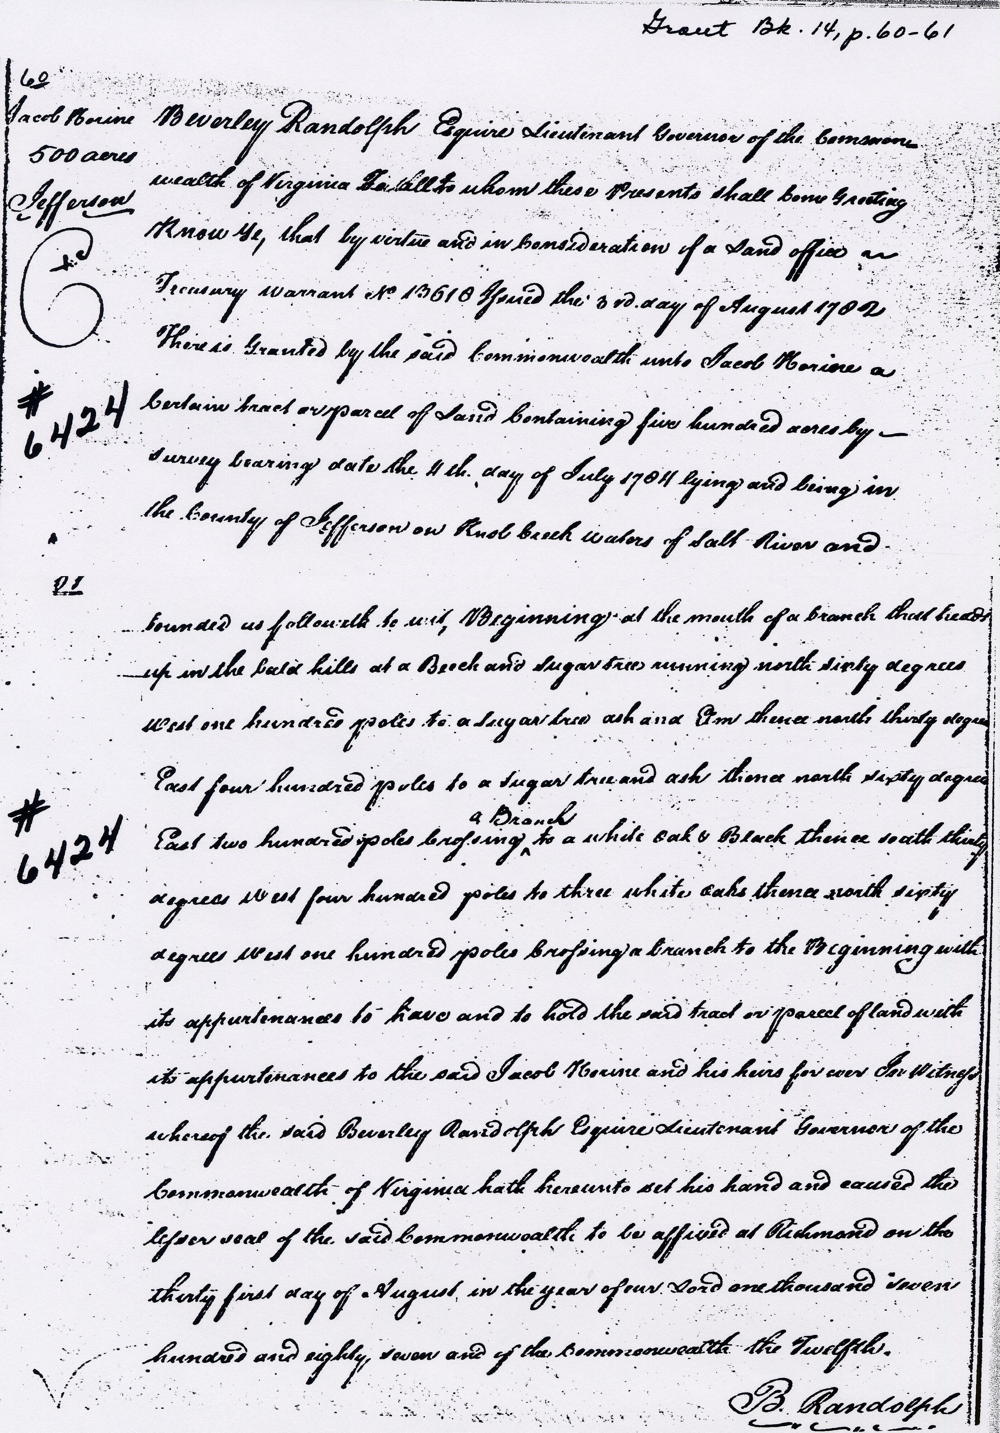 Grant Bk. 14, p. 60-61
60
Jacob Morine
500 acres
Jefferson
Exd
Beverley Randolph Esquire Lieutenant Governor of the Common
wealth of Virginia To all to whom these Presents shall Come Greeting
Know Ye, that by virtue and in Consideration of a Land office
Treasury Warrant No 13618 Issued the 3rd day of August 1782
There is Granted by the said Commonwealth unto Jacob Morine a
Certain tract or parcel of Land Containing five hundred acres by
survey bearing date the 4th. day of July 1784 lying and being in
the County of Jefferson on Knob Creek waters of Salt River and
# 6424
bounded as followeth to wit, Beginning at the mouth of a branch that heads
up in the bald hills at a Beech and sugar tree running north sixty degrees
West one hundred poles to a sugar tree ash and Elm thence north thirty degrees
East four hundred poles to a sugar tree and ash thence north sixty degrees
a Branch
East two hundred poles Crossing ^ to a white oak & Black thence south thirty
degrees West four hundred poles to three white oaks thence north sixty
degrees West one hundred poles Crossing a branch to the Beginning with
its appurtenances to have and to hold the said tract or parcel of land with
its appurtenances to the said Jacob Morine and his heirs for ever In Witness
whereof the said Beverley Randolph Esquire Lieutenant Governor of the
Commonwealth of Virginia hath hereunto set his hand and caused the
lesser seal of the said Commonwealth to be affixed at Richmond on the
thirty first day of August in the year of our Lord one thousand seven
hundred and eighty seven and of the Commonwealth the Twelfth.
# 6424
B. Randolph